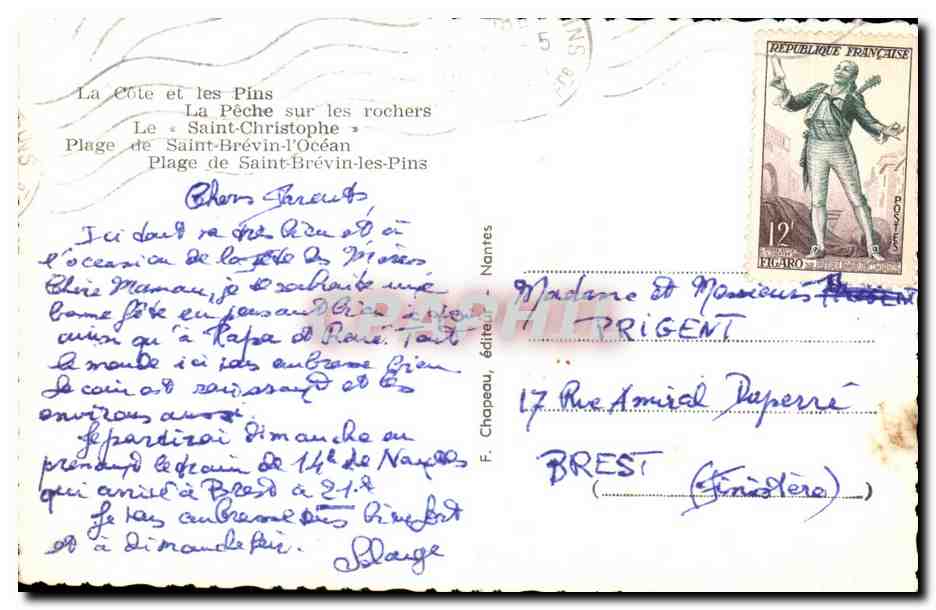 INS
5
La Côte et les Pins
La Pêche sur les rochers
Le « Saint-Christophe »
Plage de Saint-Brévin-l'Océan
Plage de Saint-Brévin-les-Pins
Chers Parents,
Ici tout va très bien et à
l'occasion de la fête des Mères
Chère Maman, je te souhaite une
bonne fête en pensant bien à vous
ainsi qu'à Papa et René. Tout
le monde ici vous embrasse bien
Le coin est ravissant et les
environs aussi.
Je partirai dimanche en
prenant le train de 14h de Nantes
qui arrive à Brest à 21h
Je vous embrasse tous bien fort
et à dimanche soir.
Solange
F. Chapeau, éditeur - Nantes
RÉPUBLIQUE FRANÇAISE
POSTES
12F
FIGARO
Madame et Monsieur
PRIGENT
17 Rue Amiral Duperré
BREST (Finistère)